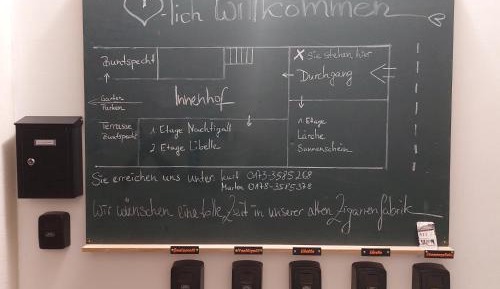 -lich willkommen
Zundspecht
X Sie stehen hier
Durchgang
Innenhof
Garten
Parken
Terrasse
Zundspecht
1 Etage Nachtigall
2. Etage Libelle
1. Etage
Lärche
Sonnenschein
Sie erreichen uns unter 0173-3585268
0178-3585378
Wir wünschen eine tolle Zeit in unserer alten Zigarrenfabrik